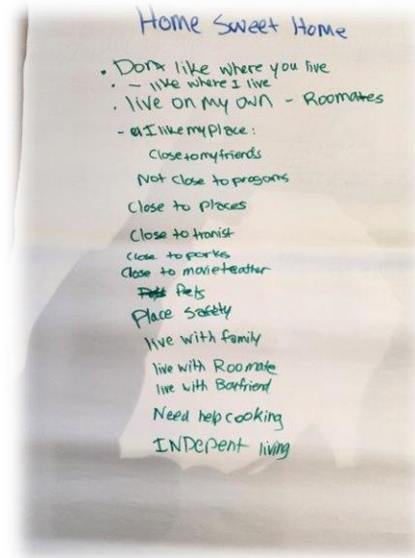 Home Sweet Home
• Dont like where you live
• – like where I live
• live on my own – Roomates
– I like my place:
Close to my friends
Not Close to progams
Close to places
Close to tranist
Close to parks
Close to movie teather
Pets
Place Safety
live with family
live with Roomate
live with Boyfriend
Need help cooking
INDepent living